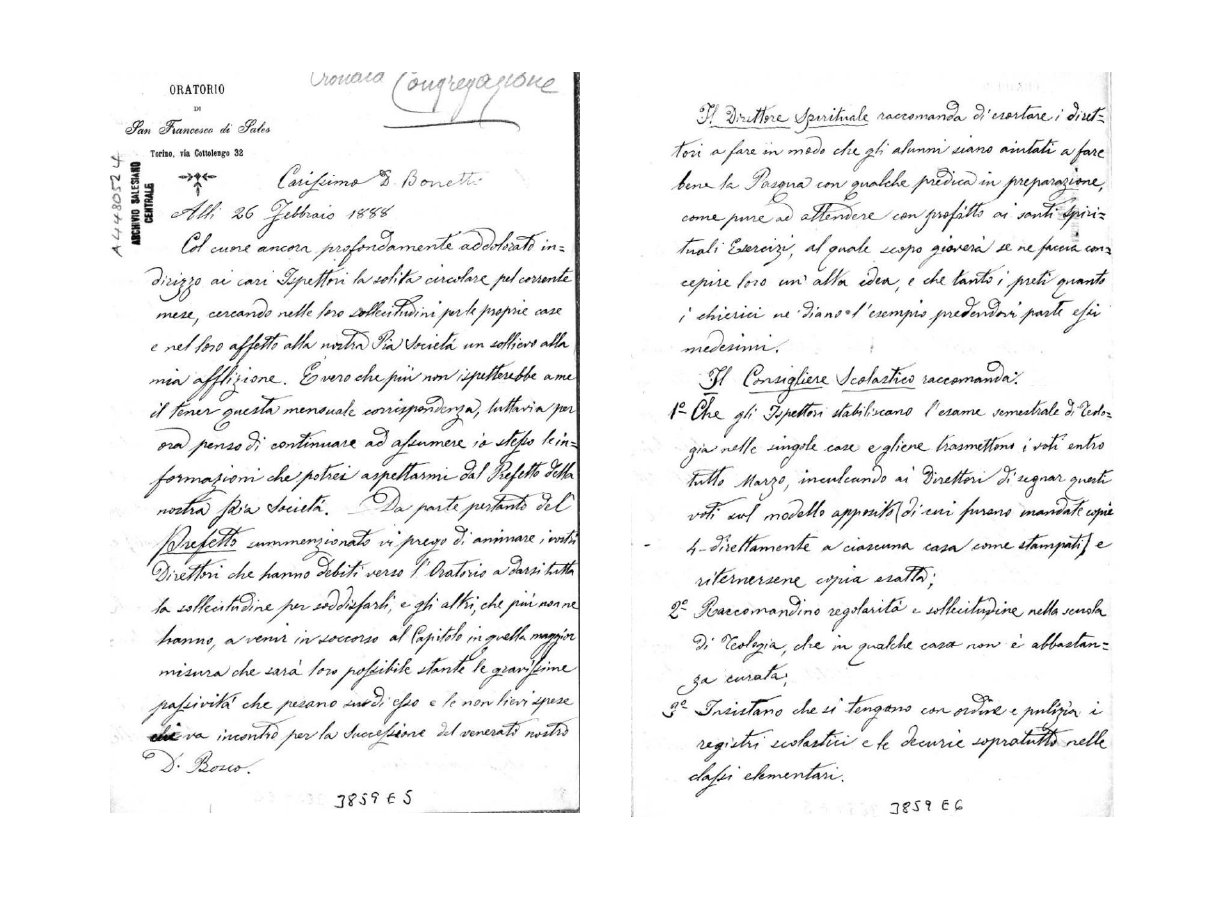 Cronaca Congregazione
ORATORIO
DI
San Francesco di Sales
Torino, via Cottolengo 32
A4480524
ARCHIVIO SALESIANO
CENTRALE
Carissimo D. Bonetti
Alli 26 Febbraio 1888
Col cuore ancora profondamente addolorato in=
dirizzo ai cari Ispettori la solita circolare pel corrente
mese, cercando nelle loro sollecitudini per le proprie case
e nel loro affetto alla nostra Pia Società un sollievo alla
mia afflizione. È vero che più non ispetterebbe a me
il tener questa mensuale corrispondenza, tuttavia per
ora penso di continuare ad assumere io stesso le in=
formazioni che potrei aspettarmi dal Prefetto della
nostra Pia Società. Da parte pertanto del
Prefetto summenzionato vi prego di animare i vostri
Direttori che hanno debiti verso l'Oratorio a darsi tutta
la sollecitudine per soddisfarli, e gli altri, che più non ne
hanno, a venir in soccorso al Capitolo in quella maggior
misura che sarà loro possibile stante le gravissime
passività che pesano su di esso e le non lievi spese
cui va incontro per la Successione del venerato nostro
D. Bosco.
3859 E 5
Il Direttore Spirituale raccomanda di esortare i diret=
tori a fare in modo che gli alunni siano aiutati a fare
bene la Pasqua con qualche predica in preparazione,
come pure ad attendere con profitto ai santi spiri=
tuali Esercizi, al quale scopo gioverà se ne faccia con=
cepire loro un'alta idea, e che tanto i preti quanto
i chierici ne diano l'esempio prendendovi parte essi
medesimi.
Il Consigliere Scolastico raccomanda:
1º Che gli Ispettori stabiliscano l'esame semestrale di Teolo=
gia nelle singole case e gliene trasmettono i voti entro
tutto Marzo, inculcando ai Direttori di segnar questi
voti sul modello apposito (di cui furono mandate copie
4 direttamente a ciascuna casa come stampati) e
riternersene copia esatta;
2º Raccomandino regolarità e sollecitudine nella scuola
di Teologia, che in qualche casa non è abbastan=
za curata;
3º Insistano che si tengano con ordine e pulizia i
registri scolastici e le decurie sopratutto nelle
classi elementari.
3859 E 6